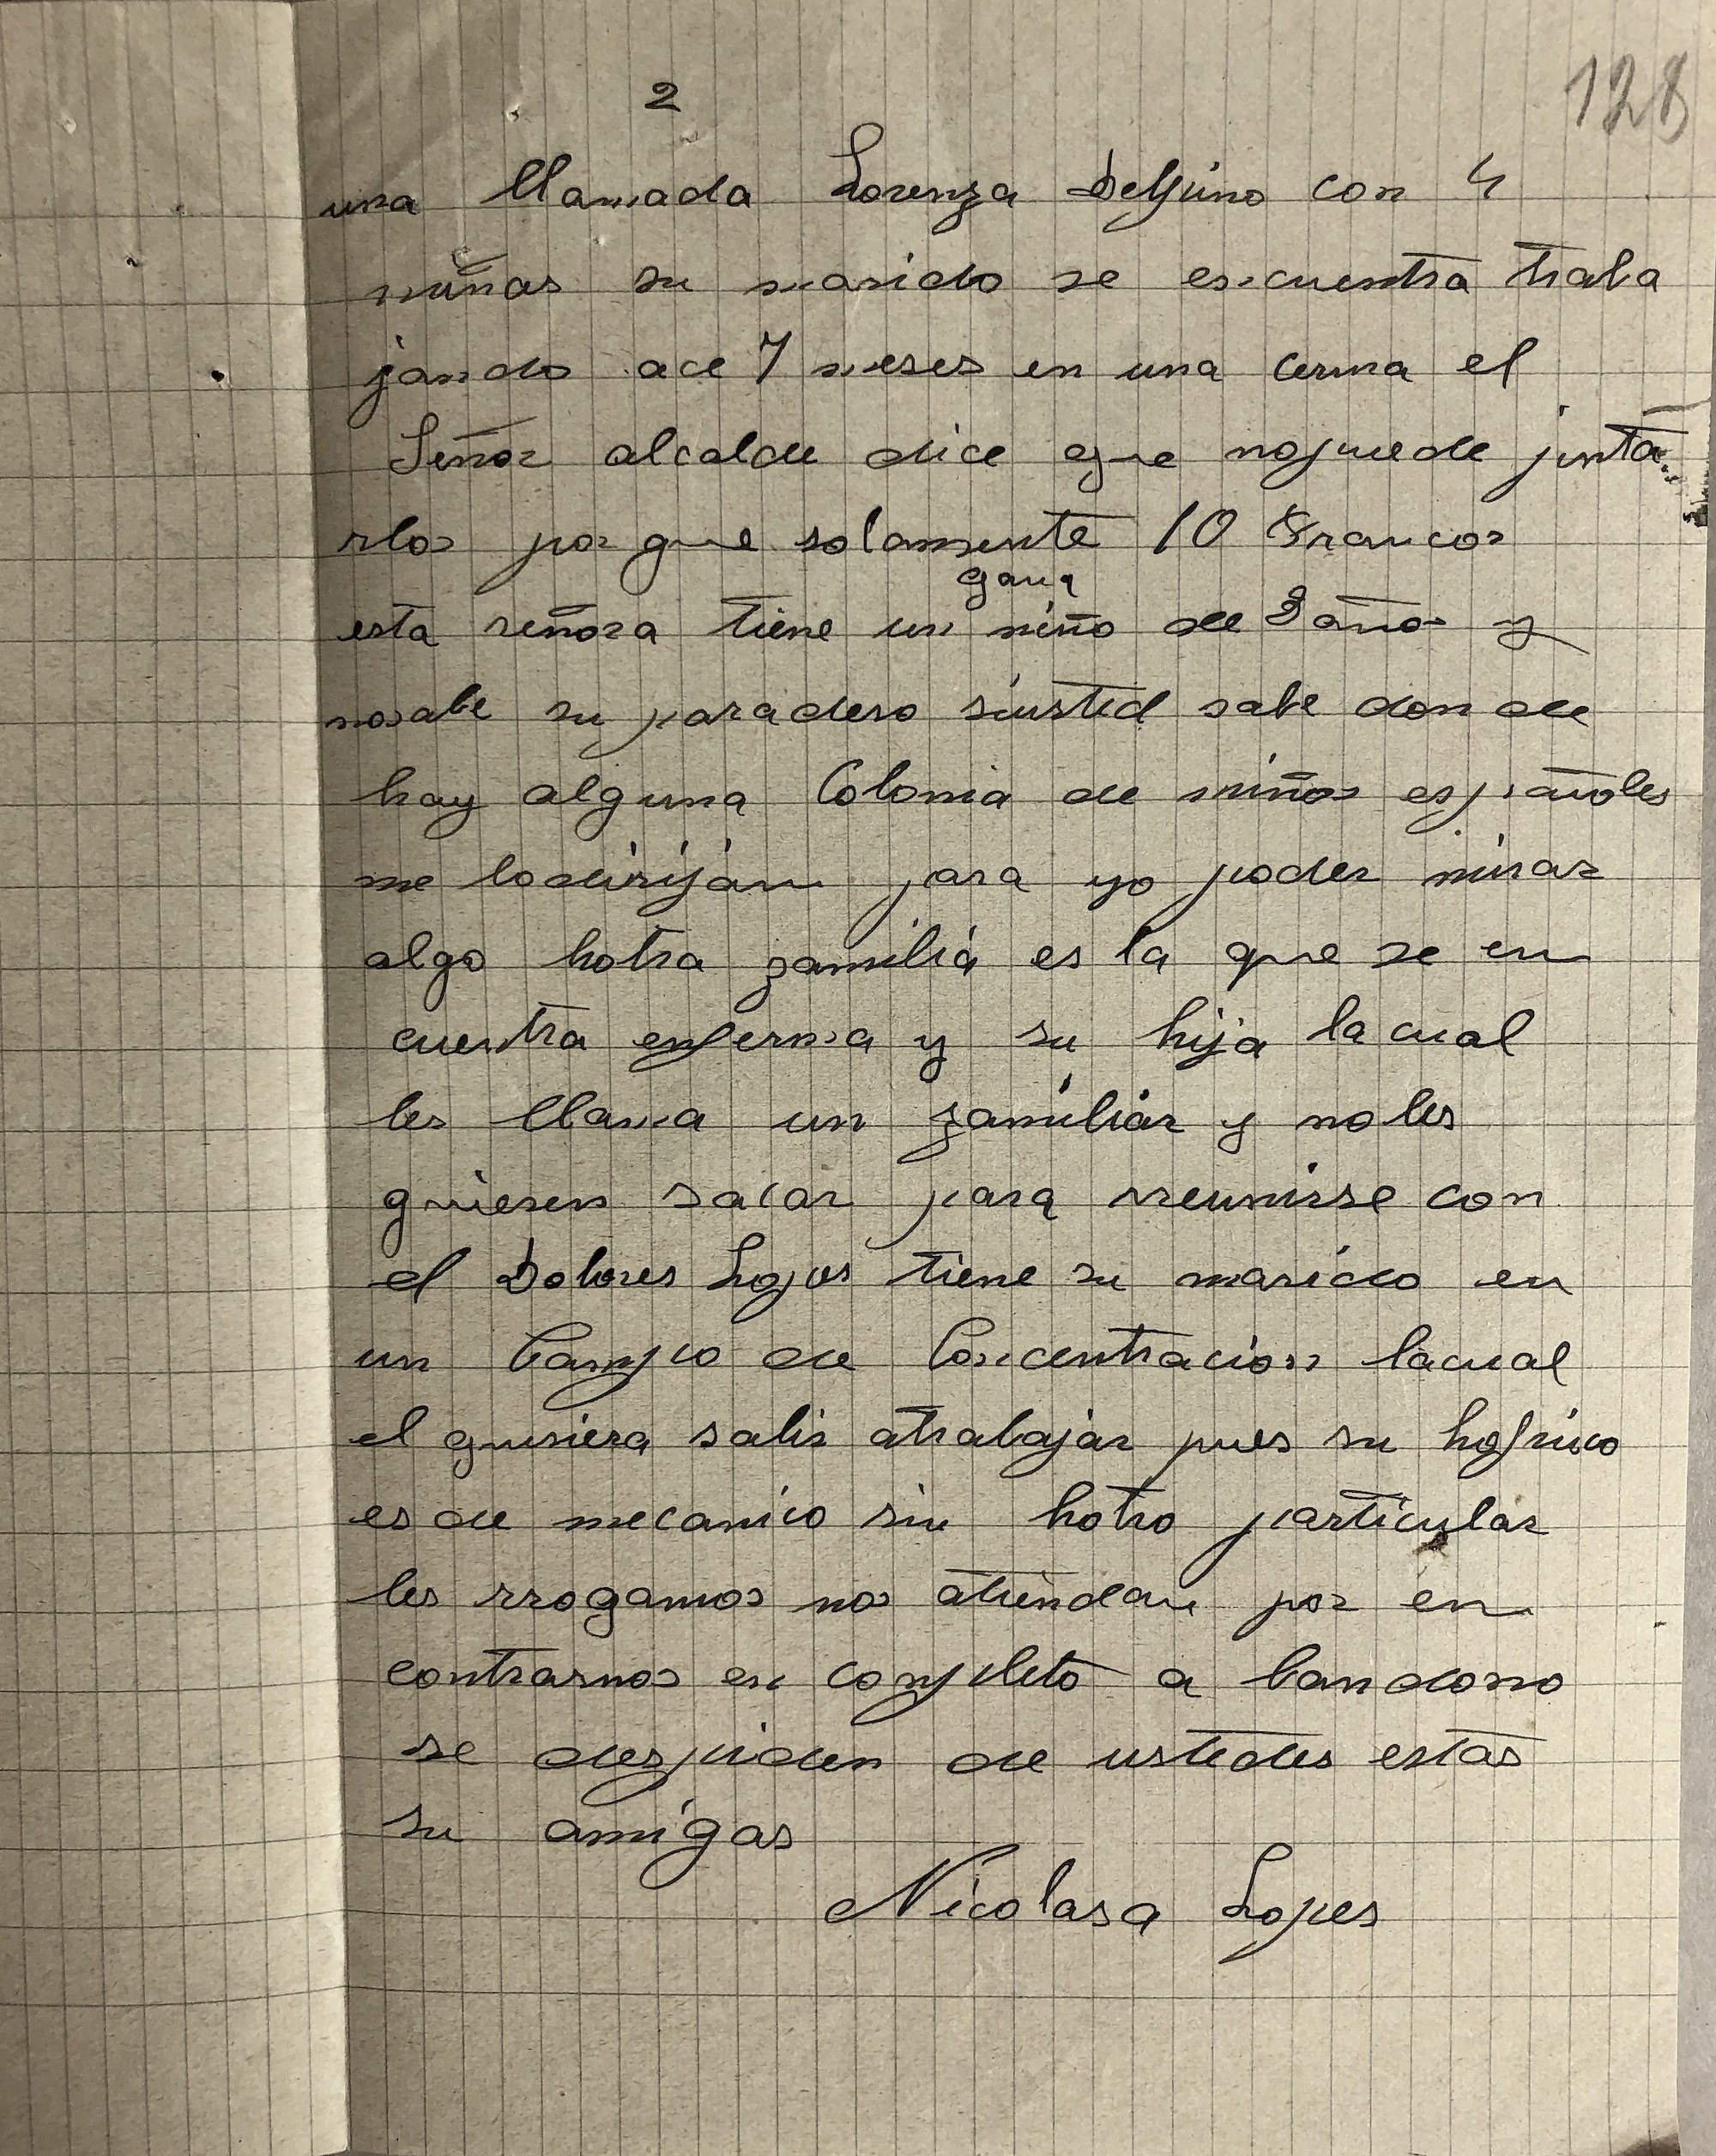 2
128
una llamada Lorenza Delfino con 4
niñas su marido se encuentra traba
jando ace 7 meses en una cerma el
Señor alcalde dice que nopuede junta
rlos porque solamente 10 Francos
gana
esta señora tiene un niño de 3 años y
nosabe su paradero siusted sabe don de
hay alguna Colonia de niños españoles
me lodirijan para yo poder mirar
algo hotra familia es la que se en
cuentra enferma y su hija la cual
les llama un familiar y no les
quieren sacar para rreunirse con
el Dolores Lopes tiene su marido en
un Campo de Concentracion lacual
el quisiera salir atrabajar pues su hofricio
es de mecanico sin hotro particular
les rrogamos nos atiendan por en
contrarnos en completo a bandono
se despiden de ustedes estas
su amigas
Nicolasa Lopes